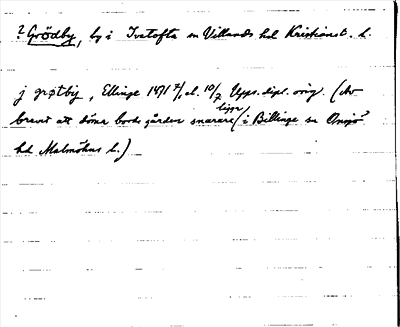 ? Gródby, by i Ivetofta sn Villands hd Kristianst. l.
j grøtby, Ellinge 1471 7/1 el. 10/7 Upps. dipl. orig. (Av
brevet att döma borde gården snarare ligga i Billinge sn Onsjö?
hd Malmöhus l.)